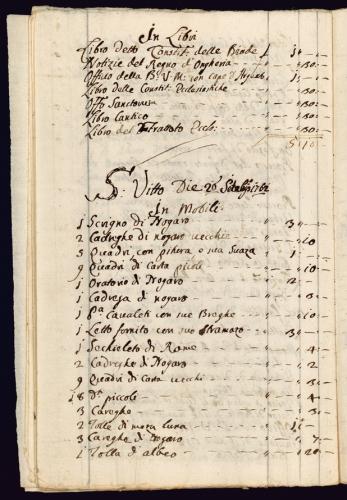 In Libri
Libro detto Constit: delle Binde 1 1:-
Notizie del Regno d'Ongheria -:10:-
Offitio della B: V: M: con cape d' 1:-
Libro delle Constit: Ecclesiastiche -:10:-
Offo Sanctorum -:10:-
Libro Cantico -:10:-
Libro del Eccle: -:10:-
5:10:-
S: Vitto Die 26
In Mobili:
1 Scrigno di Nogaro " 3:-
2 Cadreghe di nogaro vecchie - " -:10
5 Quadri con pitura e sua Suaza " 1:-
9 Quadri di Carta picoli - " -:10
1 Oratorio di Nogaro - " 2:-
1 Cadrega di nogaro - " -:3
1 Pa Cavaleti con sue Breghe - " -:10
1 Letto fornito con suo stramazo - " 3:-
1 Sechieleto di Rame - " -:4
2 Cadreghe di Nogaro - " -:2
9 Quadri di Carta vecchi - " -:3
18 Di piccoli - " -:4
3 Careghe - " -:3
2 Tolle di meza luna - " 1:-
3 Careghe di Nogaro - " -:7
1 Tolla d'albeo - " -:20